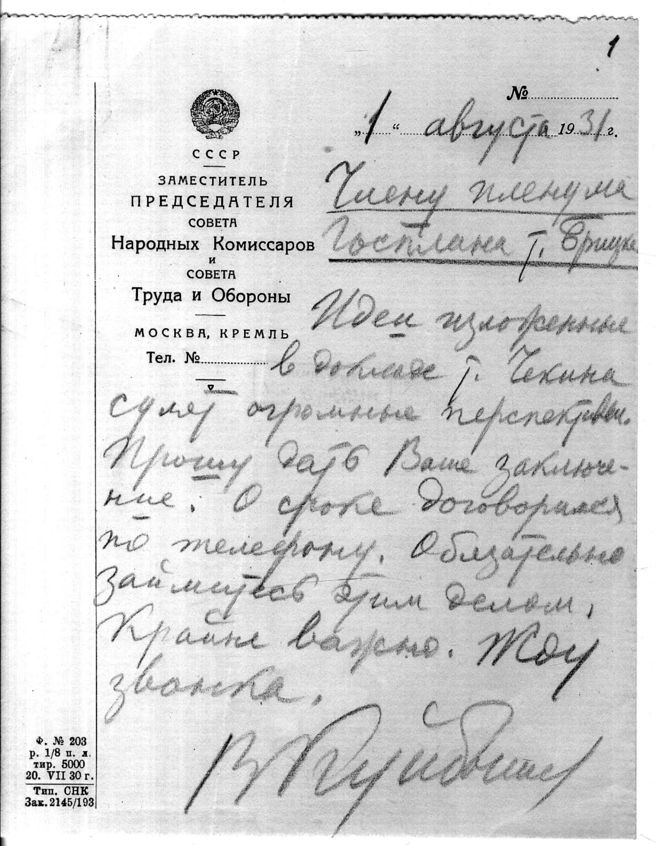 1
№
„1“ августа 1931 г.
СССР
ЗАМЕСТИТЕЛЬ
ПРЕДСЕДАТЕЛЯ
СОВЕТА
Народных Комиссаров
и
СОВЕТА
Труда и Обороны
МОСКВА, КРЕМЛЬ
Тел. №
Члену пленума
Госплана т. Брицке
Идеи изложенные
в докладе т. Чекина
сулят огромные перспективы.
Прошу дать Ваше заключе-
ние. О сроке договоримся
по телефону. Обязательно
займитесь этим делом.
Крайне важно. Жду
звонка.
В Куйбышев
Ф. № 203
р. 1/8 п. л.
тир. 5000
20. VII 30 г.
Тип. СНК
Зак. 2145/193